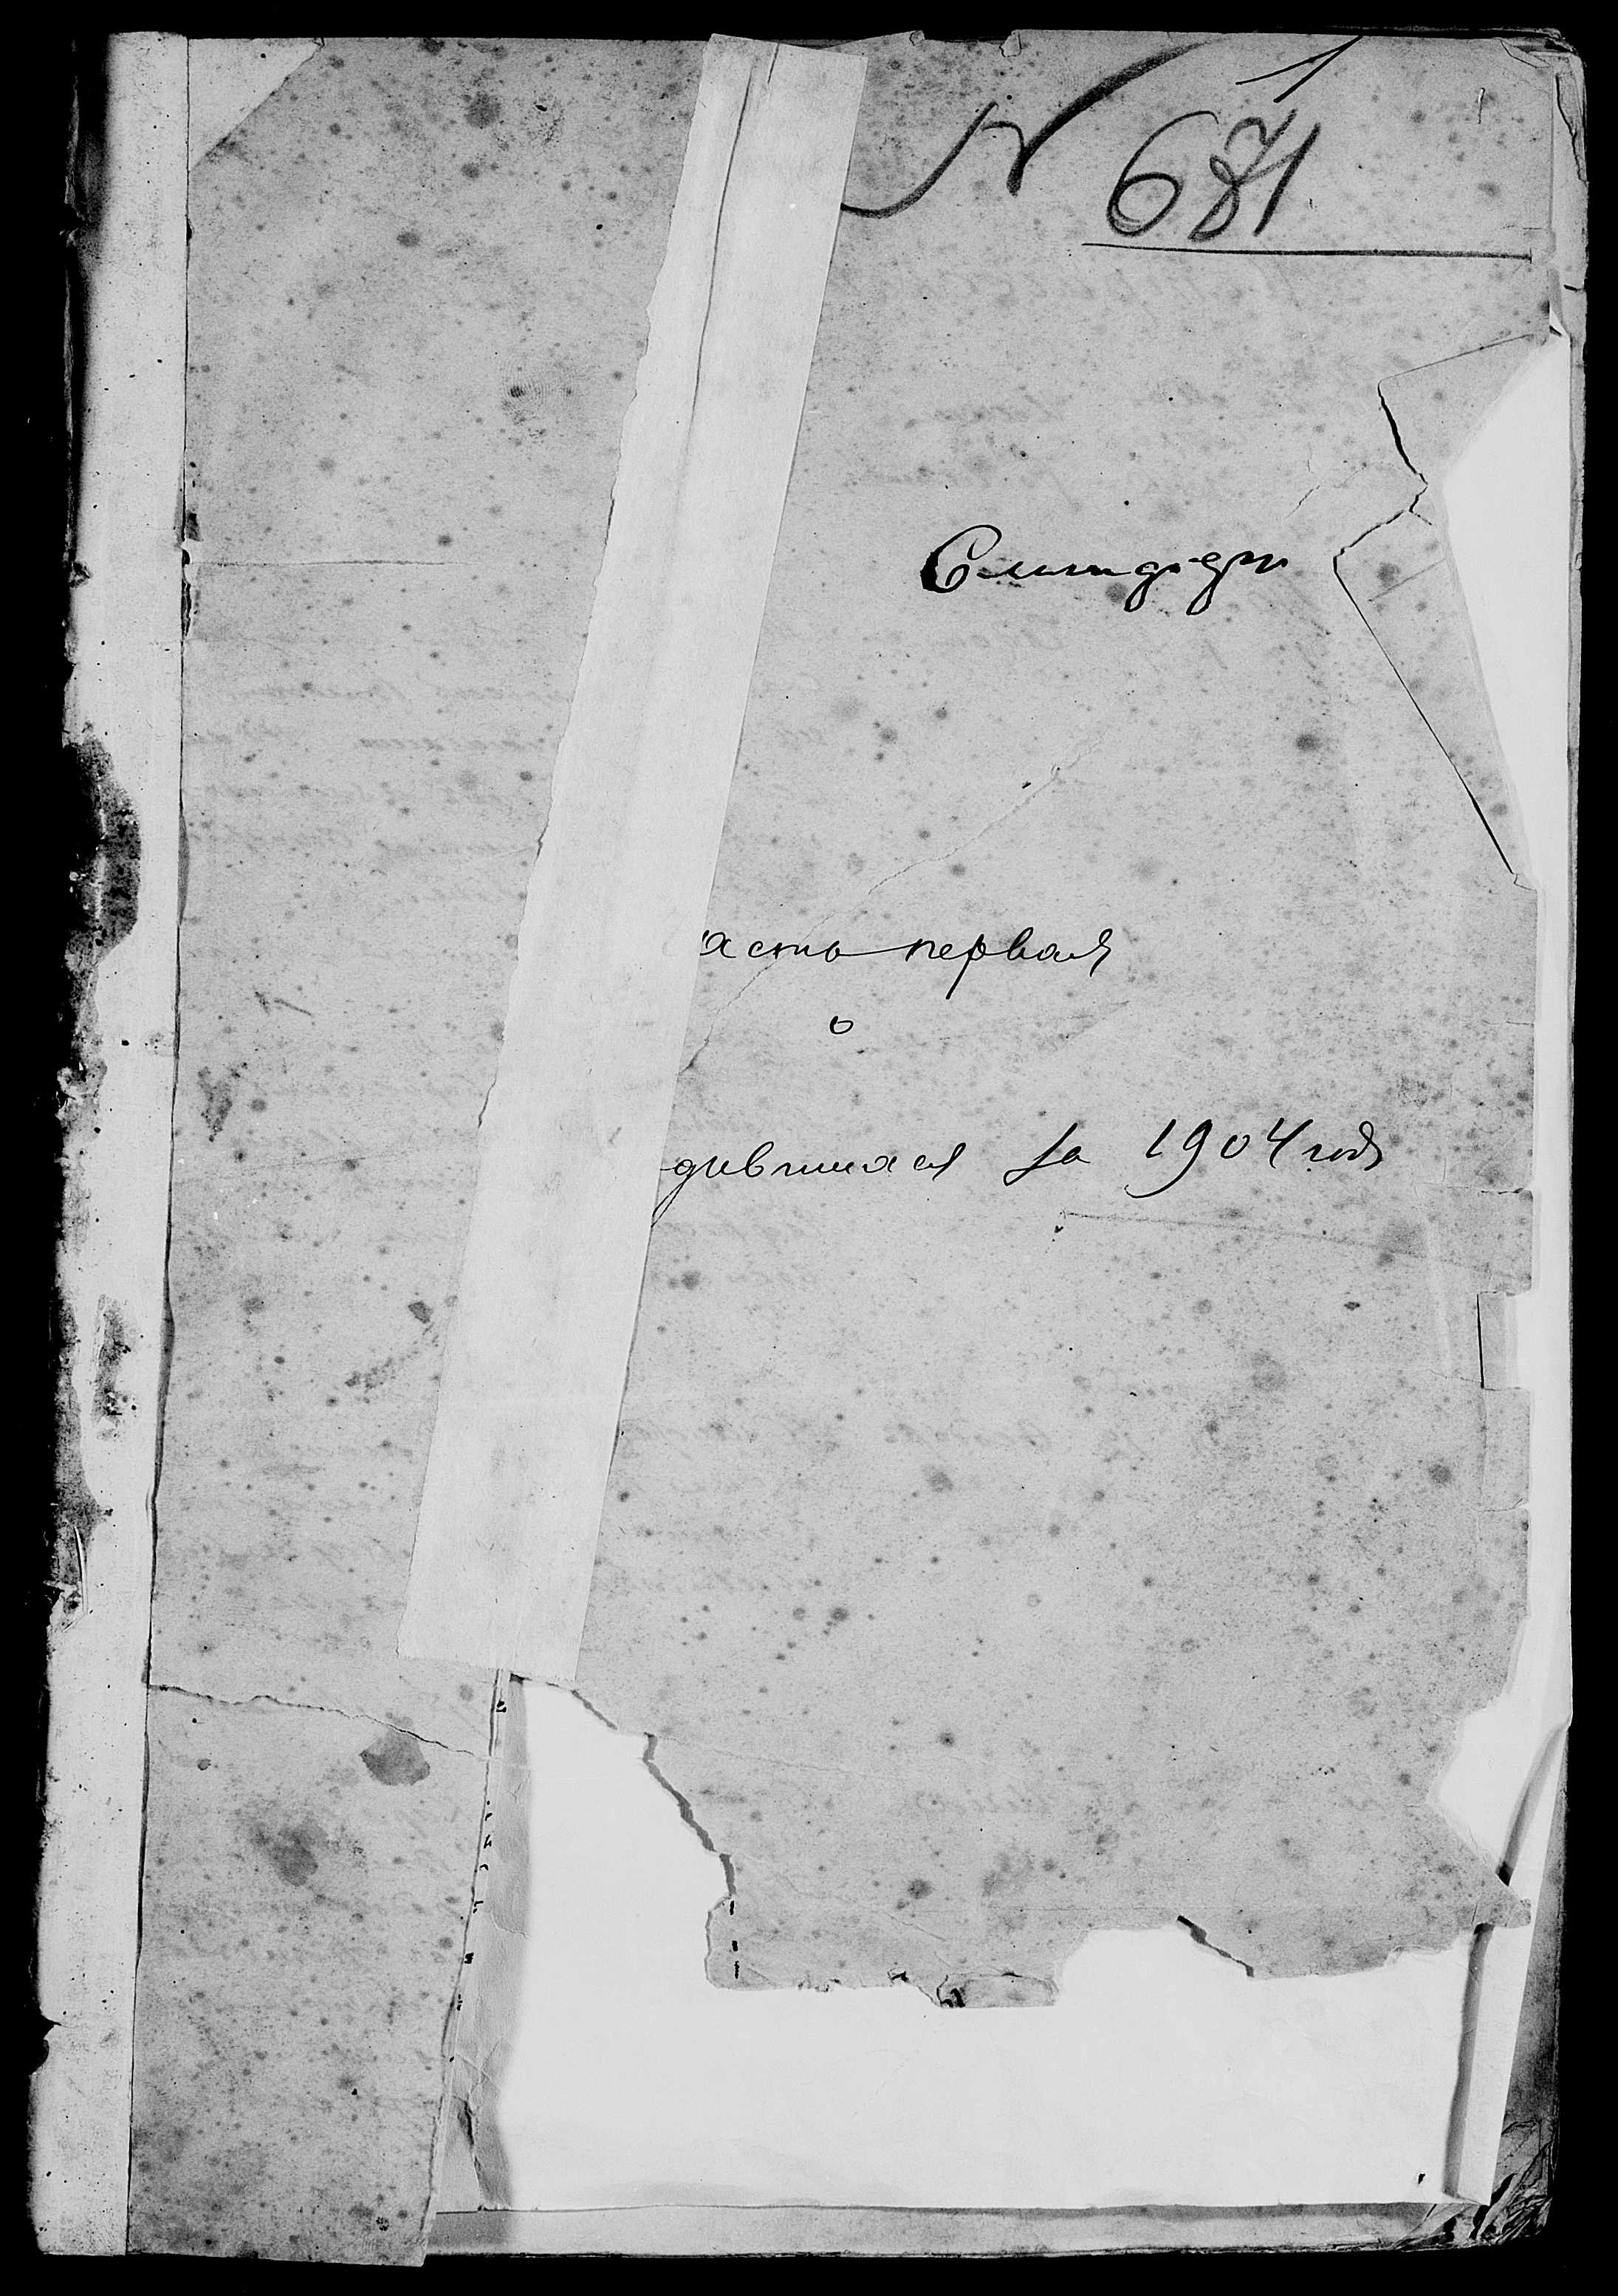 N 1
671
асть первая
о
дившихся за 1904 годъ